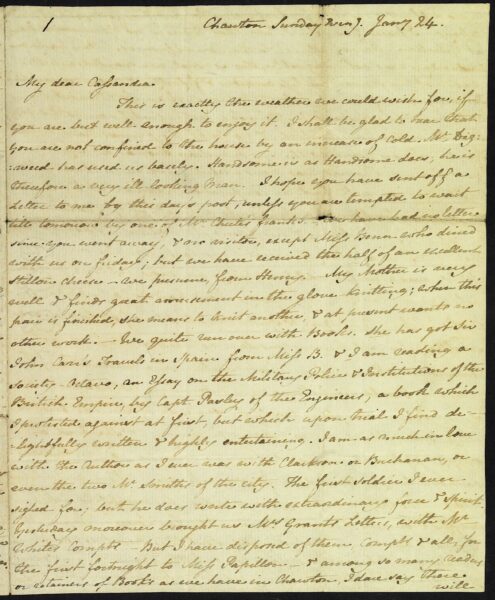 1
Chawton Sunday Eveng. Jany. 24.
My dear Cassandra
This is exactly the weather we could wish for, if
you are but well enough to enjoy it. I shall be glad to hear that
you are not confined to the house by an increase of Cold. Mr Dig=
=weed has used us basely. Handsome is as Handsome does; he is
therefore a very ill-looking Man. I hope you have sent off a
letter to me by this day's post, unless you are tempted to wait
till tomorrow by one of Mr Chute's franks. - We have had no letter
since you went away, & no visitor, except Miss Benn who dined
with us on friday; but we have received the half of an excellent
Stilton cheese - we presume, from Henry. - My Mother is very
well & finds great amusement in the glove-knitting; when this
pair is finished, she means to knit another, & at present wants no
other work. - We quite run over with Books. She has got Sir
John Carr's Travels in Spain from Miss B. & I am reading a
Society-Octavo, an Essay on the Military Police & Institutions of the
British Empire, by Capt. Pasley of the Engineers, a book which
I protested against at first, but which upon trial I find de=
=lightfully written & highly entertaining. I am as much in love
with the Author as I ever was with Clarkson or Buchanan, or
even the two Mr Smiths of the city. The first soldier I ever
sighed for; but he does write with extraordinary force & spirit.
Yesterday moreover brought us Mrs Grant's Letters, with Mr
White's Compts. - But I have disposed of them, Compts & all, for
the first fortnight to Miss Papillon - & among so many readers
or retainers of Books as we have in Chawton, I dare say there
will